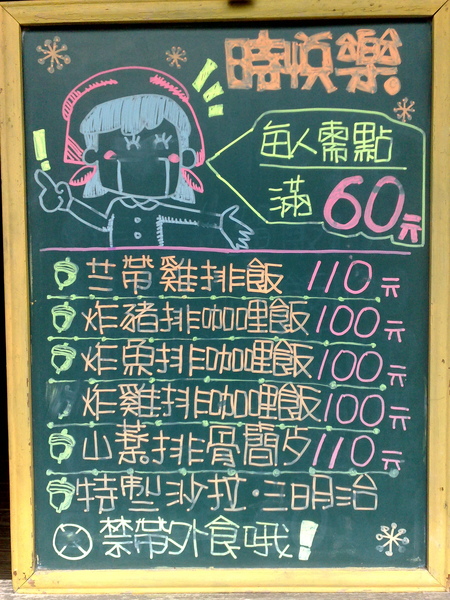 時悅樂
每人需點
滿60元
芒帶雞排飯 110元
炸豬排咖哩飯100元
炸魚排咖哩飯100元
炸雞排咖哩飯100元
山藥排骨 110元
特製沙拉．三明治
禁帶外食哦！